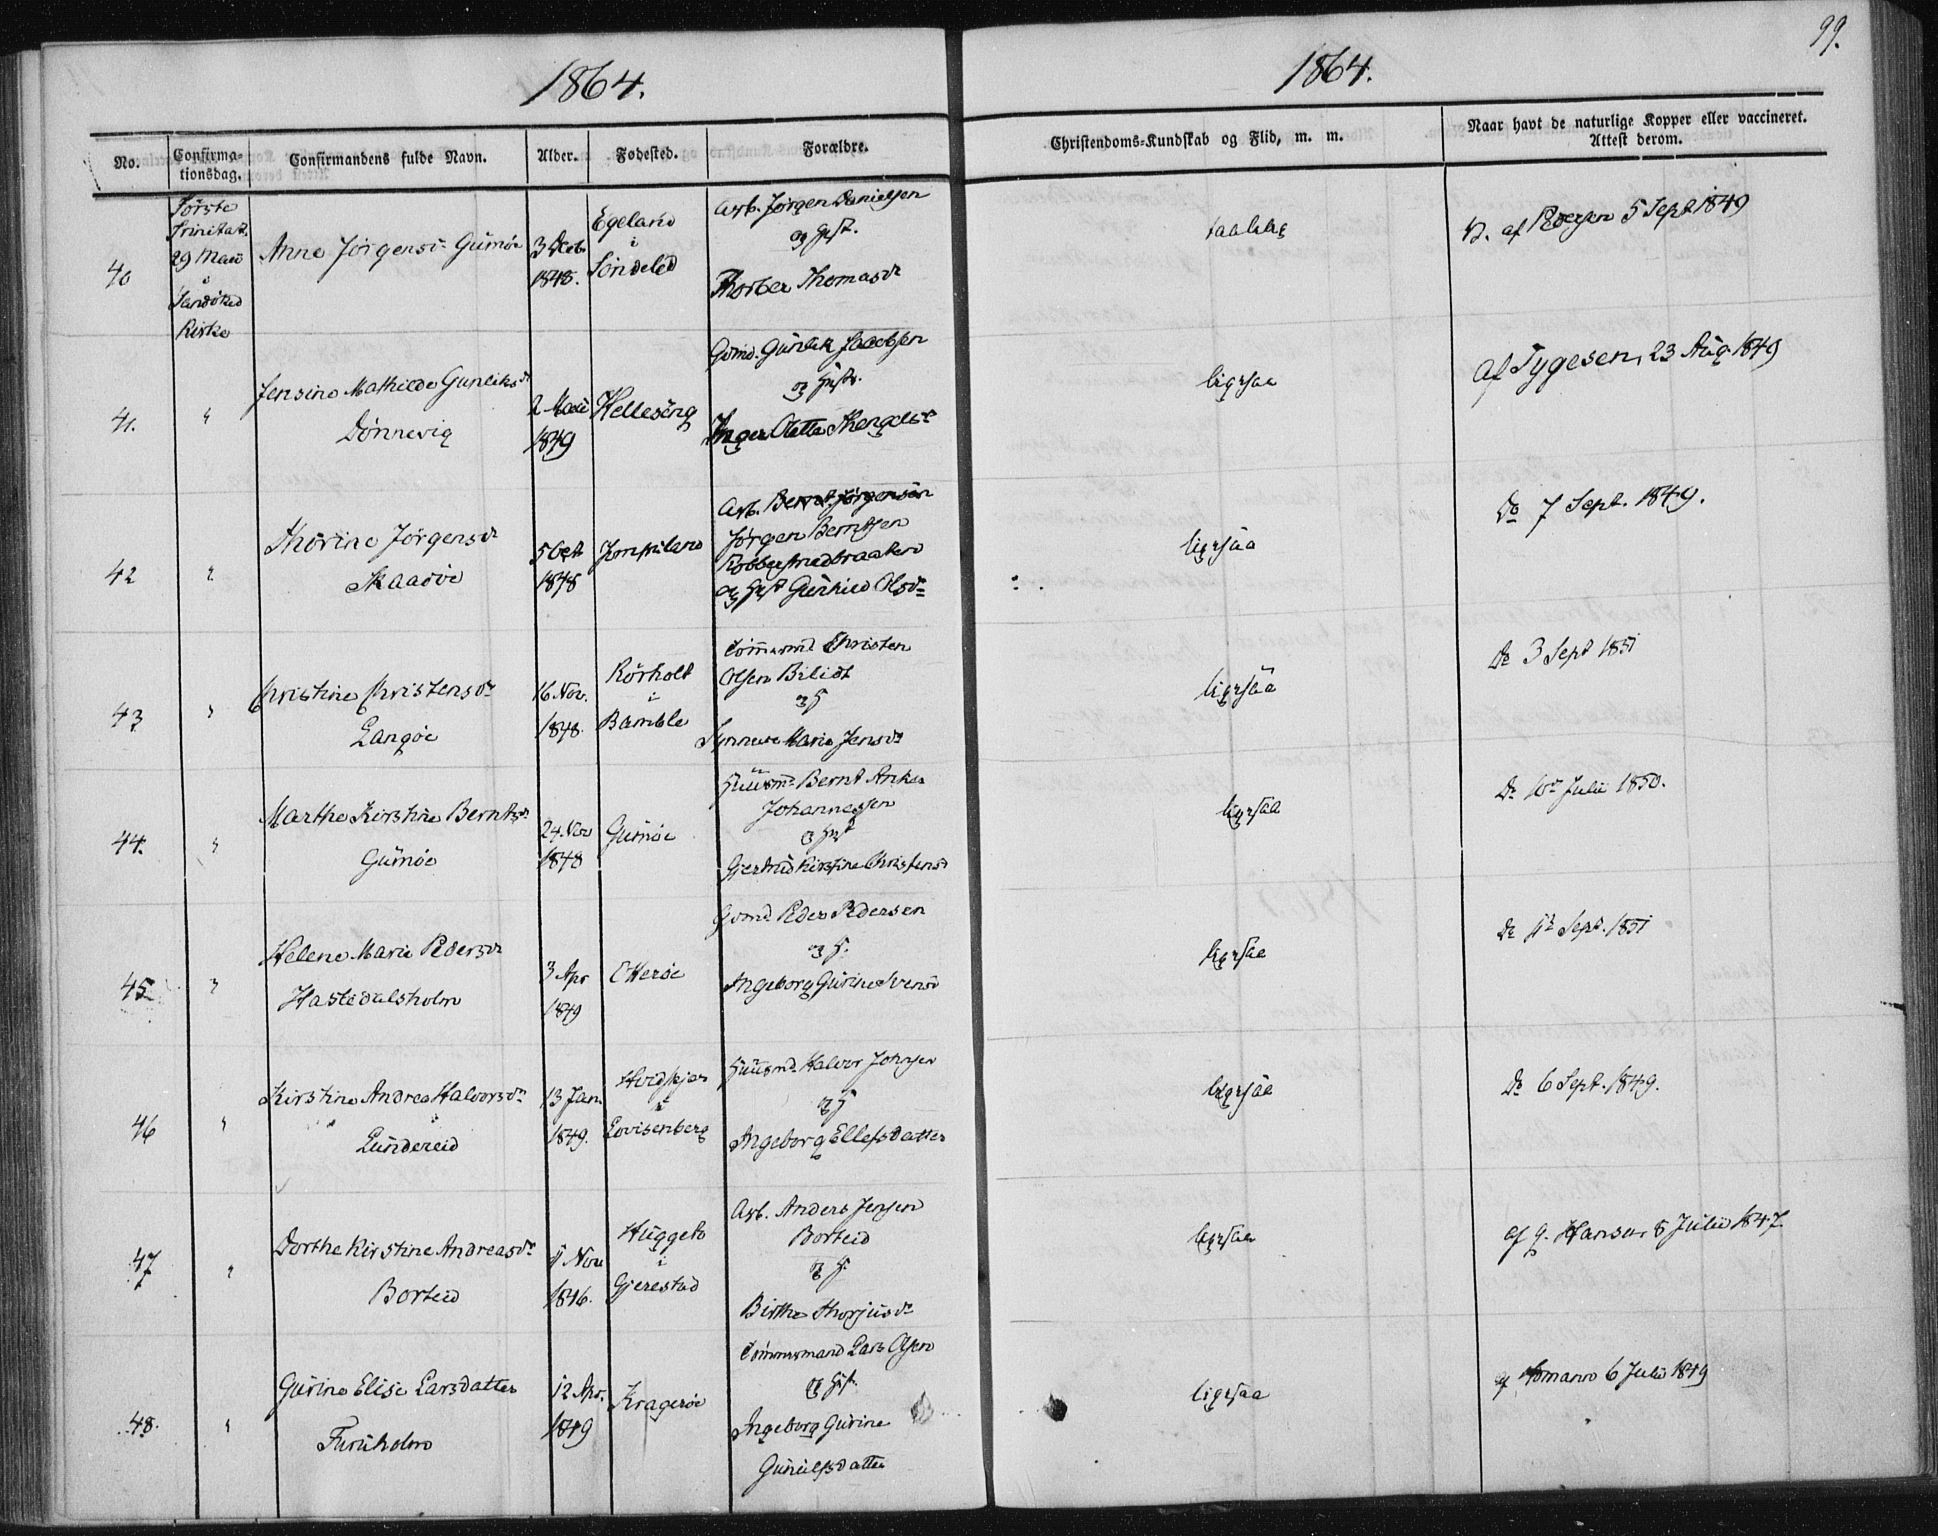 1864.
1864.
99.
No.
Confirma-
tionsdag.
Confirmandens fulde Navn.
Alder.
Fødested.
Forældre.
Christendoms-Kundskab og Flid, m. m.
Naar havt de naturlige Kopper eller vaccineret.
Attest derom.
40
Første
Trinitat.
29 Maii
i
Sandøked
Kirke
Anne Jørgensdr Gumøe
3 Decb.
1848.
Egeland
i
Søndeled
Arb. Jørgen Danielsen
og Hust.
Thorber Thomasdr
taalelig
V. af 5 Sept 1849
41.
"
Jensine Mathilde Gunliksdr
Dønnevig
2 Maii
1849
Hellesøng
Gomd. Gunlik Jacobsen
og Hustr.
Inger Olette
ligesaa
Af Tygesen, 23 Aug. 1849
42
"
Thorine Jørgensdr
Skaadøe
5 Oct
1848
Jomfruland
Arb. Bernt Jørgensen
Jørgen Berntsen
og Hust Gunhild Olsdr
ligesaa
Do 7 Sept. 1849.
43
"
Christine Christensdr
Langøe
16 Nov.
1848.
Rørholt
i
Bamble
Tømmermd Christen
Olsen Bilidt
og H
Synneve Marie Jensdr
ligesaa
Do 3 Sept 1851
44.
"
Marthe Kirstine Berntsdr
Gumøe
24. Nov
1848
Gumøe
Huusmd Bernt Anker
Johannessen
og Hust
Gjertrud Kirstine Christensdr
ligesaa
Do 10de Julii 1850.
45
"
Helene Marie Pedersdr
Hastedalsholm
3 Apr
1849
Otterøe
Gomd Peder Pedersen
og H.
Ingeborg Gurine Svensd
ligesaa
Do 11te Sept. 1851
46
"
Kirstine Andrea Halvorsdr
Lundereid
13 Jan.
1849.
Hvidskjær
i
Lovisenberg
Huusmd Halvor Johnsen
og H
Ingeborg Ellefsdatter
ligesaa
Do 6 Sept. 1849.
47
"
Dorthe Kirstine Andreasdr
Borteid
11 Nov
1846.
Huggeto
i
Gjerestad
Arb. Anders Jensen
Borteid
og H.
Birthe Thorjusdr
ligesaa
af G. Hansen 8 Julii 1847.
48.
"
Gurine Elise Larsdatter
Furuholm
12 Apr.
1849
Kragerøe
Tømmermand Lars Olsen
og Hust.
Ingeborg Gurine
Gunulfsdatter
ligesaa
af Homann 6 Julii 1849